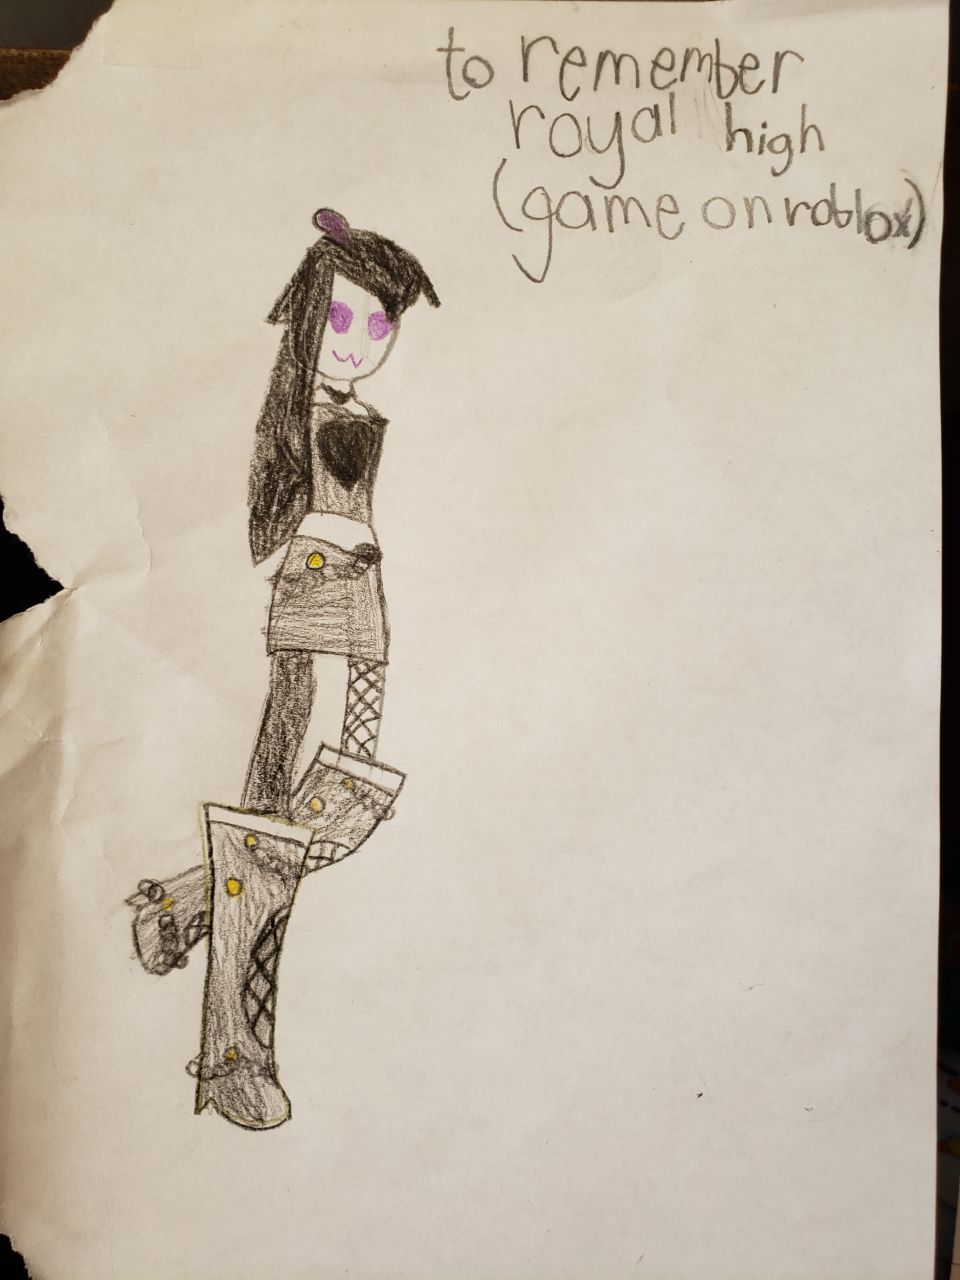 to remember
royal high
(game on roblox)